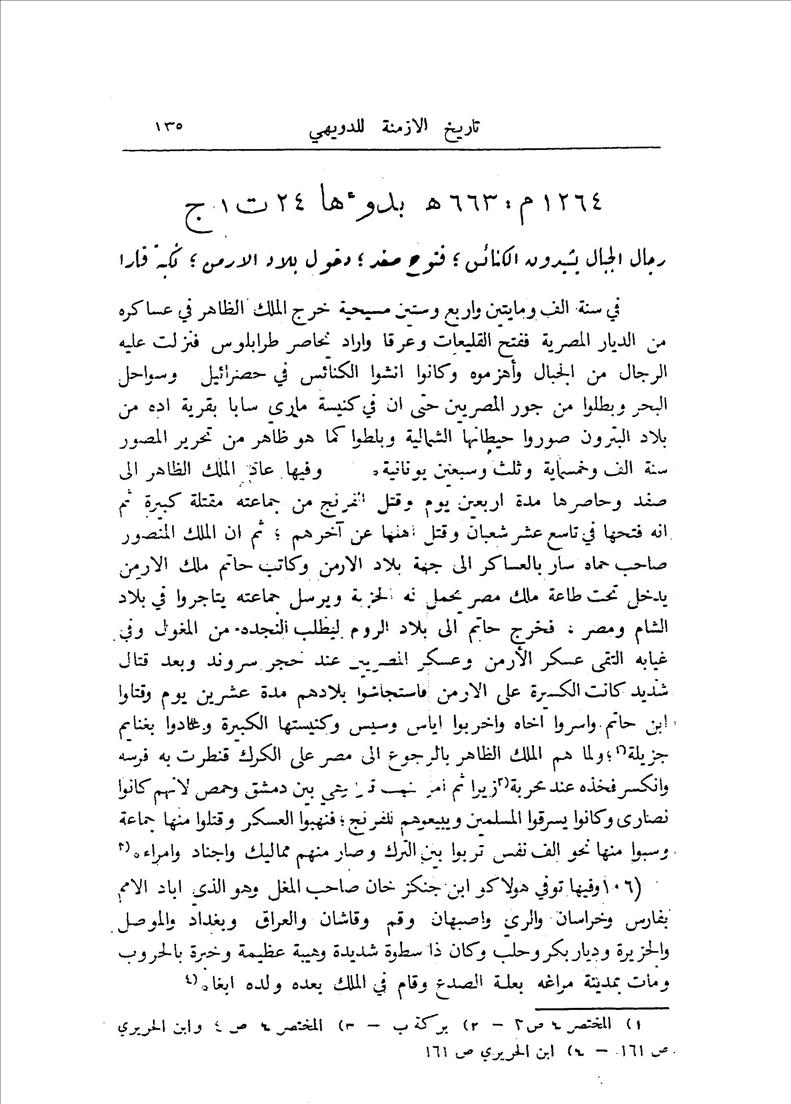 تاريخ الازمنة للدويهي ١٣٥
١٢٦٤م : ٦٦٣ﻫ بدوءها ٢٤ ت١ ج
رجال الجبال يشيدون الكنائس ؛ فتوح صفد ؛ دخول بلاد الارمن ؛ نكبة قارا
في سنة الف ومايتين واربع وستين مسيحية خرج الملك الظاهر في عساكره
من الديار المصرية ففتح القليعات وعرقا واراد يحاصر طرابلوس فنزلت عليه
الرجال من الجبال وأهزموه وكانوا انشوا الكنائس في حصرائيل وسواحل
البحر وبطلوا من جور المصريين حتى ان في كنيسة ماري سابا بقرية اده من
بلاد البترون صوروا حيطانها الشمالية وبلطوا كما هو ظاهر من تحرير المصور
سنة الف وخمسماية وثلث وسبعين يونانية . وفيها عاد الملك الظاهر الى
صفد وحاصرها مدة اربعين يوم وقتل الفرنج من جماعته مقتلة كبيرة ثم
انه فتحها في تاسع عشر شعبان وقتل اهلها عن آخرهم ؛ ثم ان الملك المنصور
صاحب حماه سار بالعساكر الى جهة بلاد الارمن وكاتب حاتم ملك الارمن
يدخل تحت طاعة ملك مصر يحمل له الجزية ويرسل جماعته يتاجروا في بلاد
الشام ومصر ، فخرج حاتم الى بلاد الروم ليطلب النجده من المغول وفي
غيابه التقى عسكر الأرمن وعسكر المصريين عند حجر سروند وبعد قتال
شديد كانت الكسرة على الارمن فاستجاشوا بلادهم مدة عشرين يوم وقتلوا
ابن حاتم واسروا اخاه واخربوا اياس وسيس وكنيستها الكبيرة وعادوا بغنايم
جزيلة١) ؛ ولما هم الملك الظاهر بالرجوع الى مصر على الكرك قنطرت به فرسه
وانكسر فخذه عند بحربة٢) زيرا ثم امر بنهب قرا يتي بين دمشق وحمص لانهم كانوا
نصارى وكانوا يسرقوا المسلمين ويبيعوهم للفرنج ؛ فنهبوا العسكر وقتلوا منها جماعة
وسبوا منها نحو الف نفس تربوا بين الترك وصار منهم مماليك واجناد وامراء .٣)
(١٠٦ وفيها توفي هولاكو ابن جنكز خان صاحب المغل وهو الذي اباد الامم
بفارس وخراسان والري واصبهان وقم وقاشان والعراق وبغداد والموصل
والجزيرة وديار بكر وحلب وكان ذا سطوة شديدة وهيبة عظيمة وخبرة بالحروب
ومات بمدينة مراغه بعلة الصدع وقام في الملك بعده ولده ابغا .٤)
١) المختصر ٤ ص ٣ – ٢) بركة ب – ٣) المختصر ٤ ص ٤ وابن الحريري
ص ١٦١ – ٤) ابن الحريري ص ١٦١